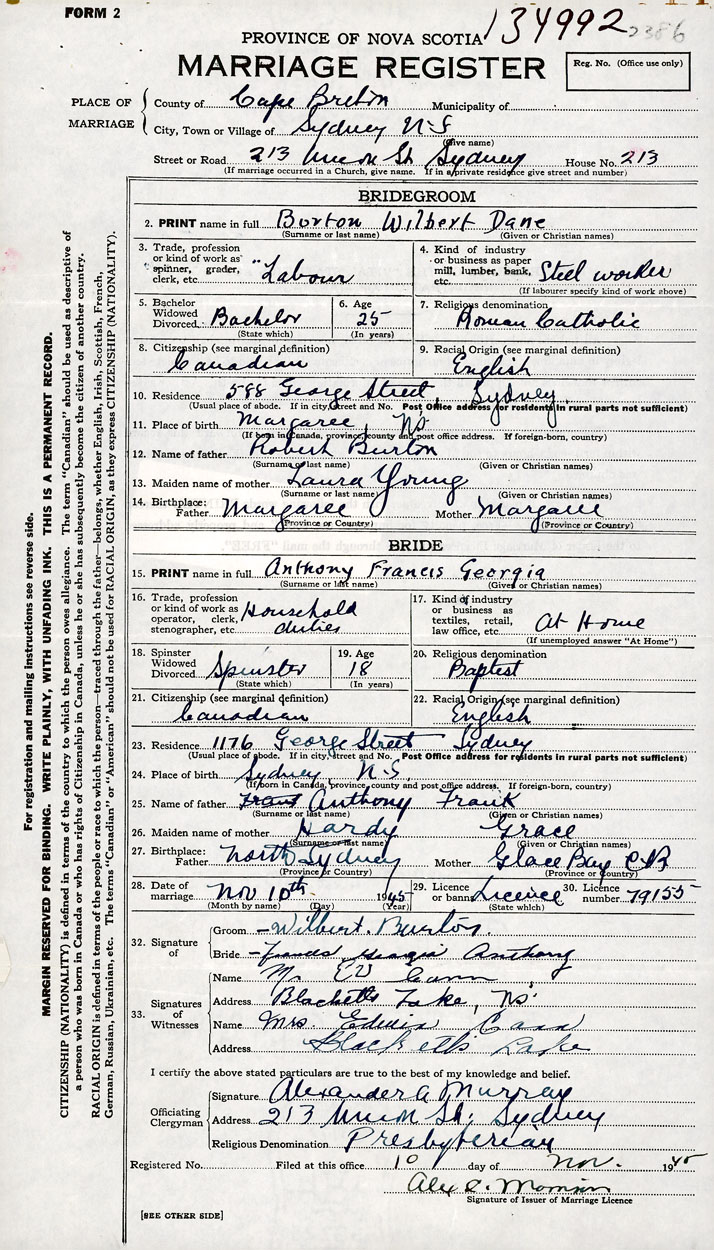 FORM 2
134992 2386
PROVINCE OF NOVA SCOTIA
MARRIAGE REGISTER
Reg. No. (Office use only)
PLACE OF MARRIAGE
County of Cape Breton Municipality of
City, Town or Village of Sydney N-S
(Give name)
Street or Road 213 Union St Sydney House No. 213
(If marriage occurred in a Church, give name. If in a private residence give street and number)
BRIDEGROOM
2. PRINT name in full Burton Wilbert Dane
(Surname or last name) (Given or Christian names)
3. Trade, profession or kind of work as spinner, grader, clerk, etc. "Labour
4. Kind of industry or business as paper mill, lumber, bank, etc. Steel worker
(If labourer specify kind of work above)
5. Bachelor Widowed Divorced Bachelor
(State which)
6. Age 25
(In years)
7. Religious denomination Roman Catholic
8. Citizenship (see marginal definition) Canadian
9. Racial Origin (see marginal definition) English
10. Residence 588 George Street, Sydney
(Usual place of abode. If in city, Street and No. Post Office address for residents in rural parts not sufficient)
11. Place of birth Margaree, NS.
(If born in Canada, province, county and post office address. If foreign-born, country)
12. Name of father Robert Burton
(Surname or last name) (Given or Christian names)
13. Maiden name of mother Laura Young
(Surname or last name) (Given or Christian names)
14. Birthplace: Father Margaree Mother Margaree
(Province or Country) (Province or Country)
BRIDE
15. PRINT name in full Anthony Francis Georgia
(Surname or last name) (Given or Christian names)
16. Trade, profession or kind of work as operator, clerk, stenographer, etc. Household duties
17. Kind of industry or business as textiles, retail, law office, etc. At Home
(If unemployed answer "At Home")
18. Spinster Widowed Divorced Spinster
(State which)
19. Age 18
(In years)
20. Religious denomination Baptist
21. Citizenship (see marginal definition) Canadian
22. Racial Origin (see marginal definition) English
23. Residence 1176 George Street Sydney
(Usual place of abode. If in city, Street and No. Post Office address for residents in rural parts not sufficient)
24. Place of birth Sydney N-S.
(If born in Canada, province, county and post office address. If foreign-born, country)
25. Name of father Anthony Frank
(Surname or last name) (Given or Christian names)
26. Maiden name of mother Hardy Grace
(Surname or last name) (Given or Christian names)
27. Birthplace: Father North Sydney Mother Glace Bay CB
(Province or Country) (Province or Country)
28. Date of marriage Nov 10th 1945
(Month by name) (Day) (Year)
29. Licence or banns Licence
(State which)
30. Licence number 79155
32. Signature of
Groom Wilbert Burton.
Bride Frances Georgia Anthony
33. Signatures of Witnesses
Name Mr. EW Cann
Address Blacketts Lake, NS.
Name Mrs. Edwin Cann
Address Blacketts Lake
I certify the above stated particulars are true to the best of my knowledge and belief.
Officiating Clergyman
Signature Alexander A Murray
Address 213 Union St. Sydney
Religious Denomination Presbyterian
Registered No. Filed at this office 10 day of Nov. 1945
Alex
Signature of Issuer of Marriage Licence
[SEE OTHER SIDE]
For registration and mailing instructions see reverse side.
MARGIN RESERVED FOR BINDING. WRITE PLAINLY, WITH UNFADING INK. THIS IS A PERMANENT RECORD.
CITIZENSHIP (NATIONALITY) is defined in terms of the country to which the person owes allegiance. The term "Canadian" should be used as descriptive of
a person who was born in Canada or who has rights of Citizenship in Canada, unless he or she has subsequently become the citizen of another country.
RACIAL ORIGIN is defined in terms of the people or race to which the person—traced through the father—belongs, whether English, Irish, Scottish, French,
German, Russian, Ukrainian, etc. The terms "Canadian" or "American" should not be used for RACIAL ORIGIN, as they express CITIZENSHIP (NATIONALITY).